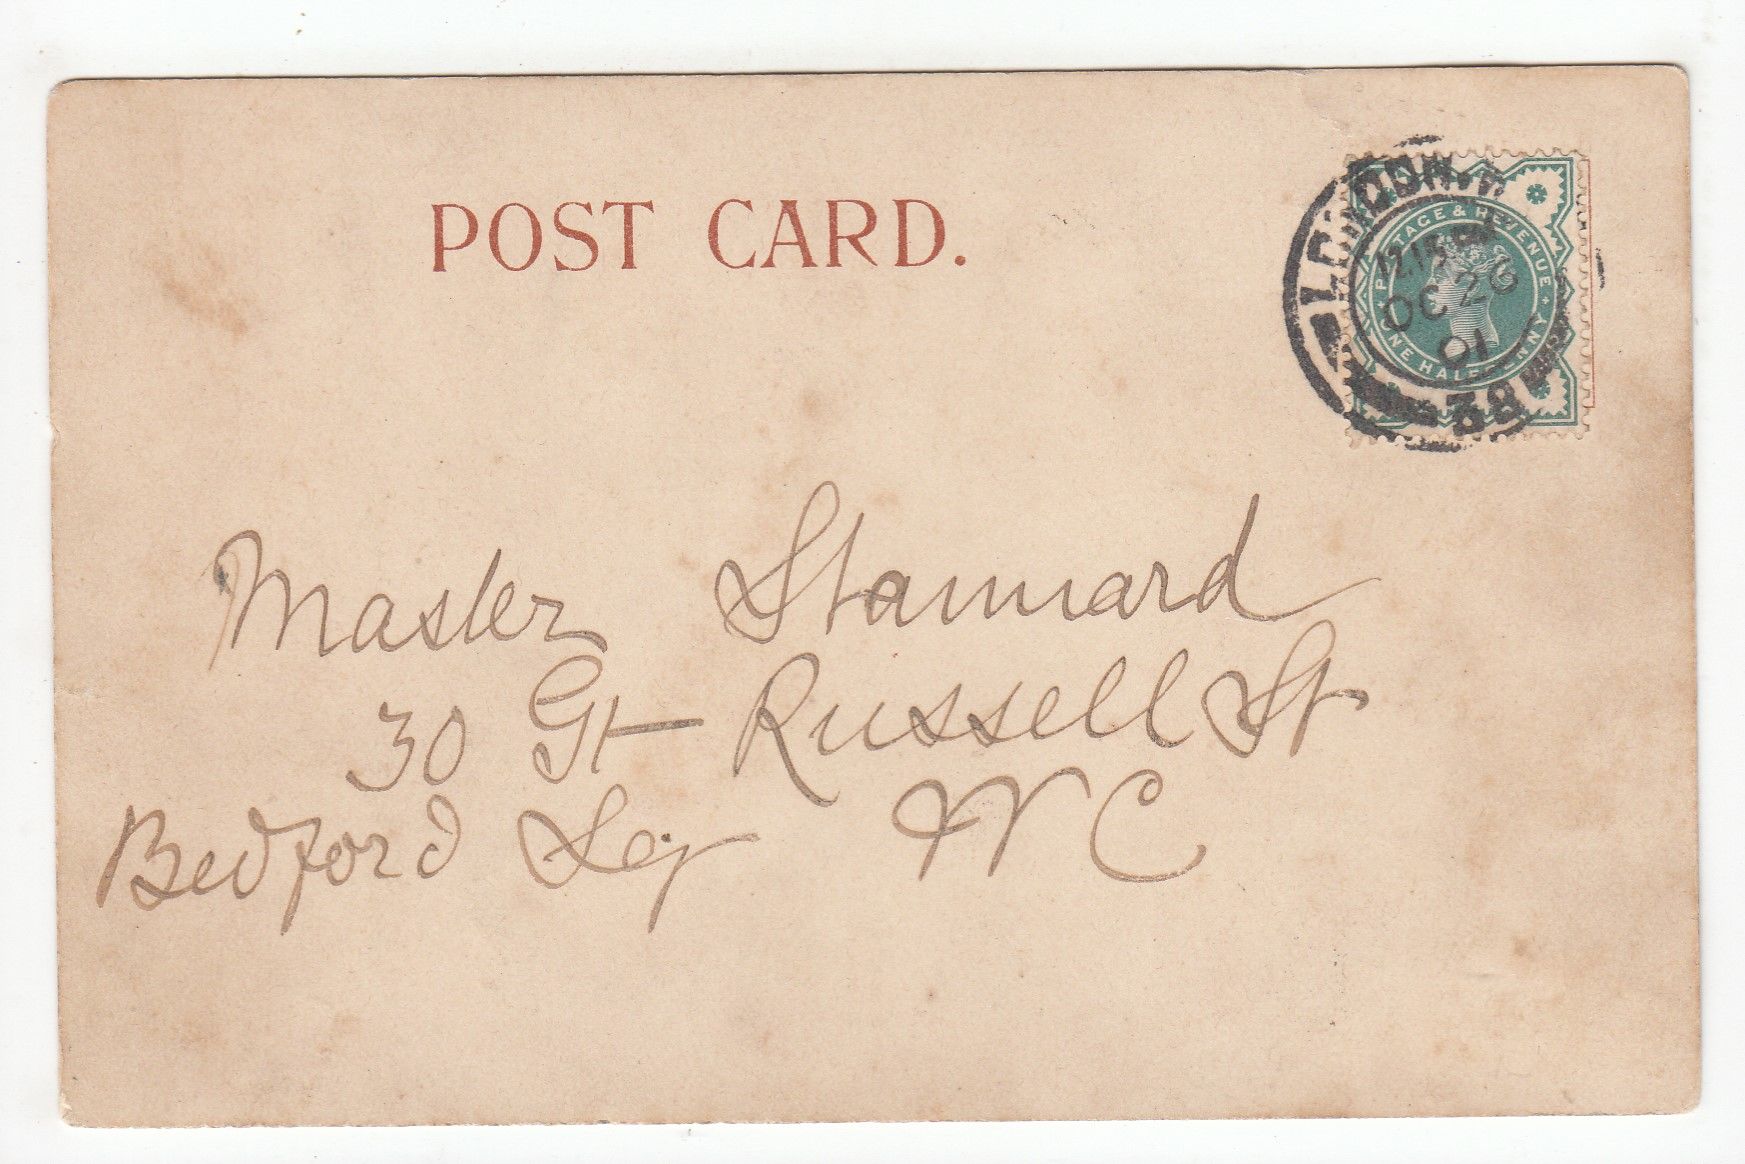 POST CARD.
LONDON. W.C
12.15 PM
OC 26
01
38
POSTAGE & REVENUE
ONE HALFPENNY
Master Stannard
30 Gt Russell St
Bedford Sq W C